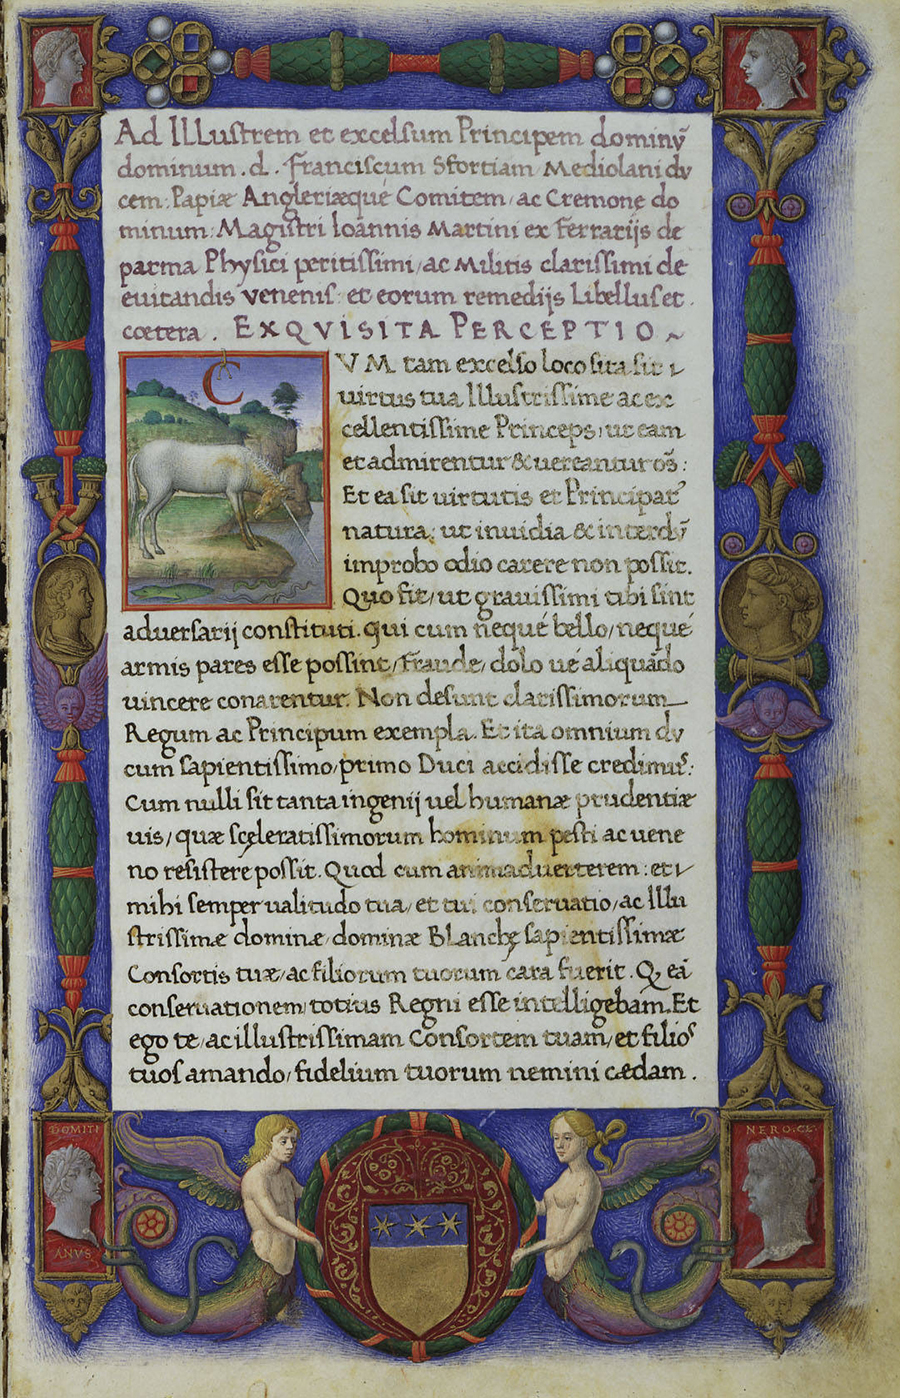 Ad Illustrem et excelsum Principem dominū
dominum .d. Franciscum Sfortiam Mediolani du
cem: Papiæ Angleriæque Comitem, ac Cremone do
minum: Magistri Ioannis Martini ex ferrarijs de
parma Physici peritissimi, ac Militis clarissimi de
euitandis uenenis: et eorum remedijs Libellus et
cœtera. EXQVISITA PERCEPTIO
C VM tam excelso loco sita sit
uirtus tua Illustrissime ac ex
cellentissime Princeps, ut eam
et admirentur & uereantur oēs:
Et ea sit uirtutis et Principat⁹
natura, ut inuidia & interdū
improbo odio carere non possit.
Quo fit, ut grauissimi tibi sint
aduersarij constituti. qui cum neque bello, neque
armis pares esse possint, fraude, dolo ue aliquādo
uincere conarentur. Non desunt clarissimorum
Regum ac Principum exempla. Et ita omnium du
cum sapientissimo, primo Duci accidisse credimus:
Cum nulli sit tanta ingenij uel humanæ prudentiæ
uis, quæ scęleratissimorum hominum pesti ac uene
no resistere possit. Quod cum animaduerterem: et
mihi semper ualitudo tua, et tui conseruatio, ac Illu
strissimæ dominæ, dominæ Blanchę sapientissimæ
Consortis tuæ, ac filiorum tuorum cara fuerit. Q, eā
conseruationem, totius Regni esse intelligebam. Et
ego te, ac illustrissimam Consortem tuam, et filios
tuos amando, fidelium tuorum nemini cædam.
DOMITI
ANVS
NERO.CL